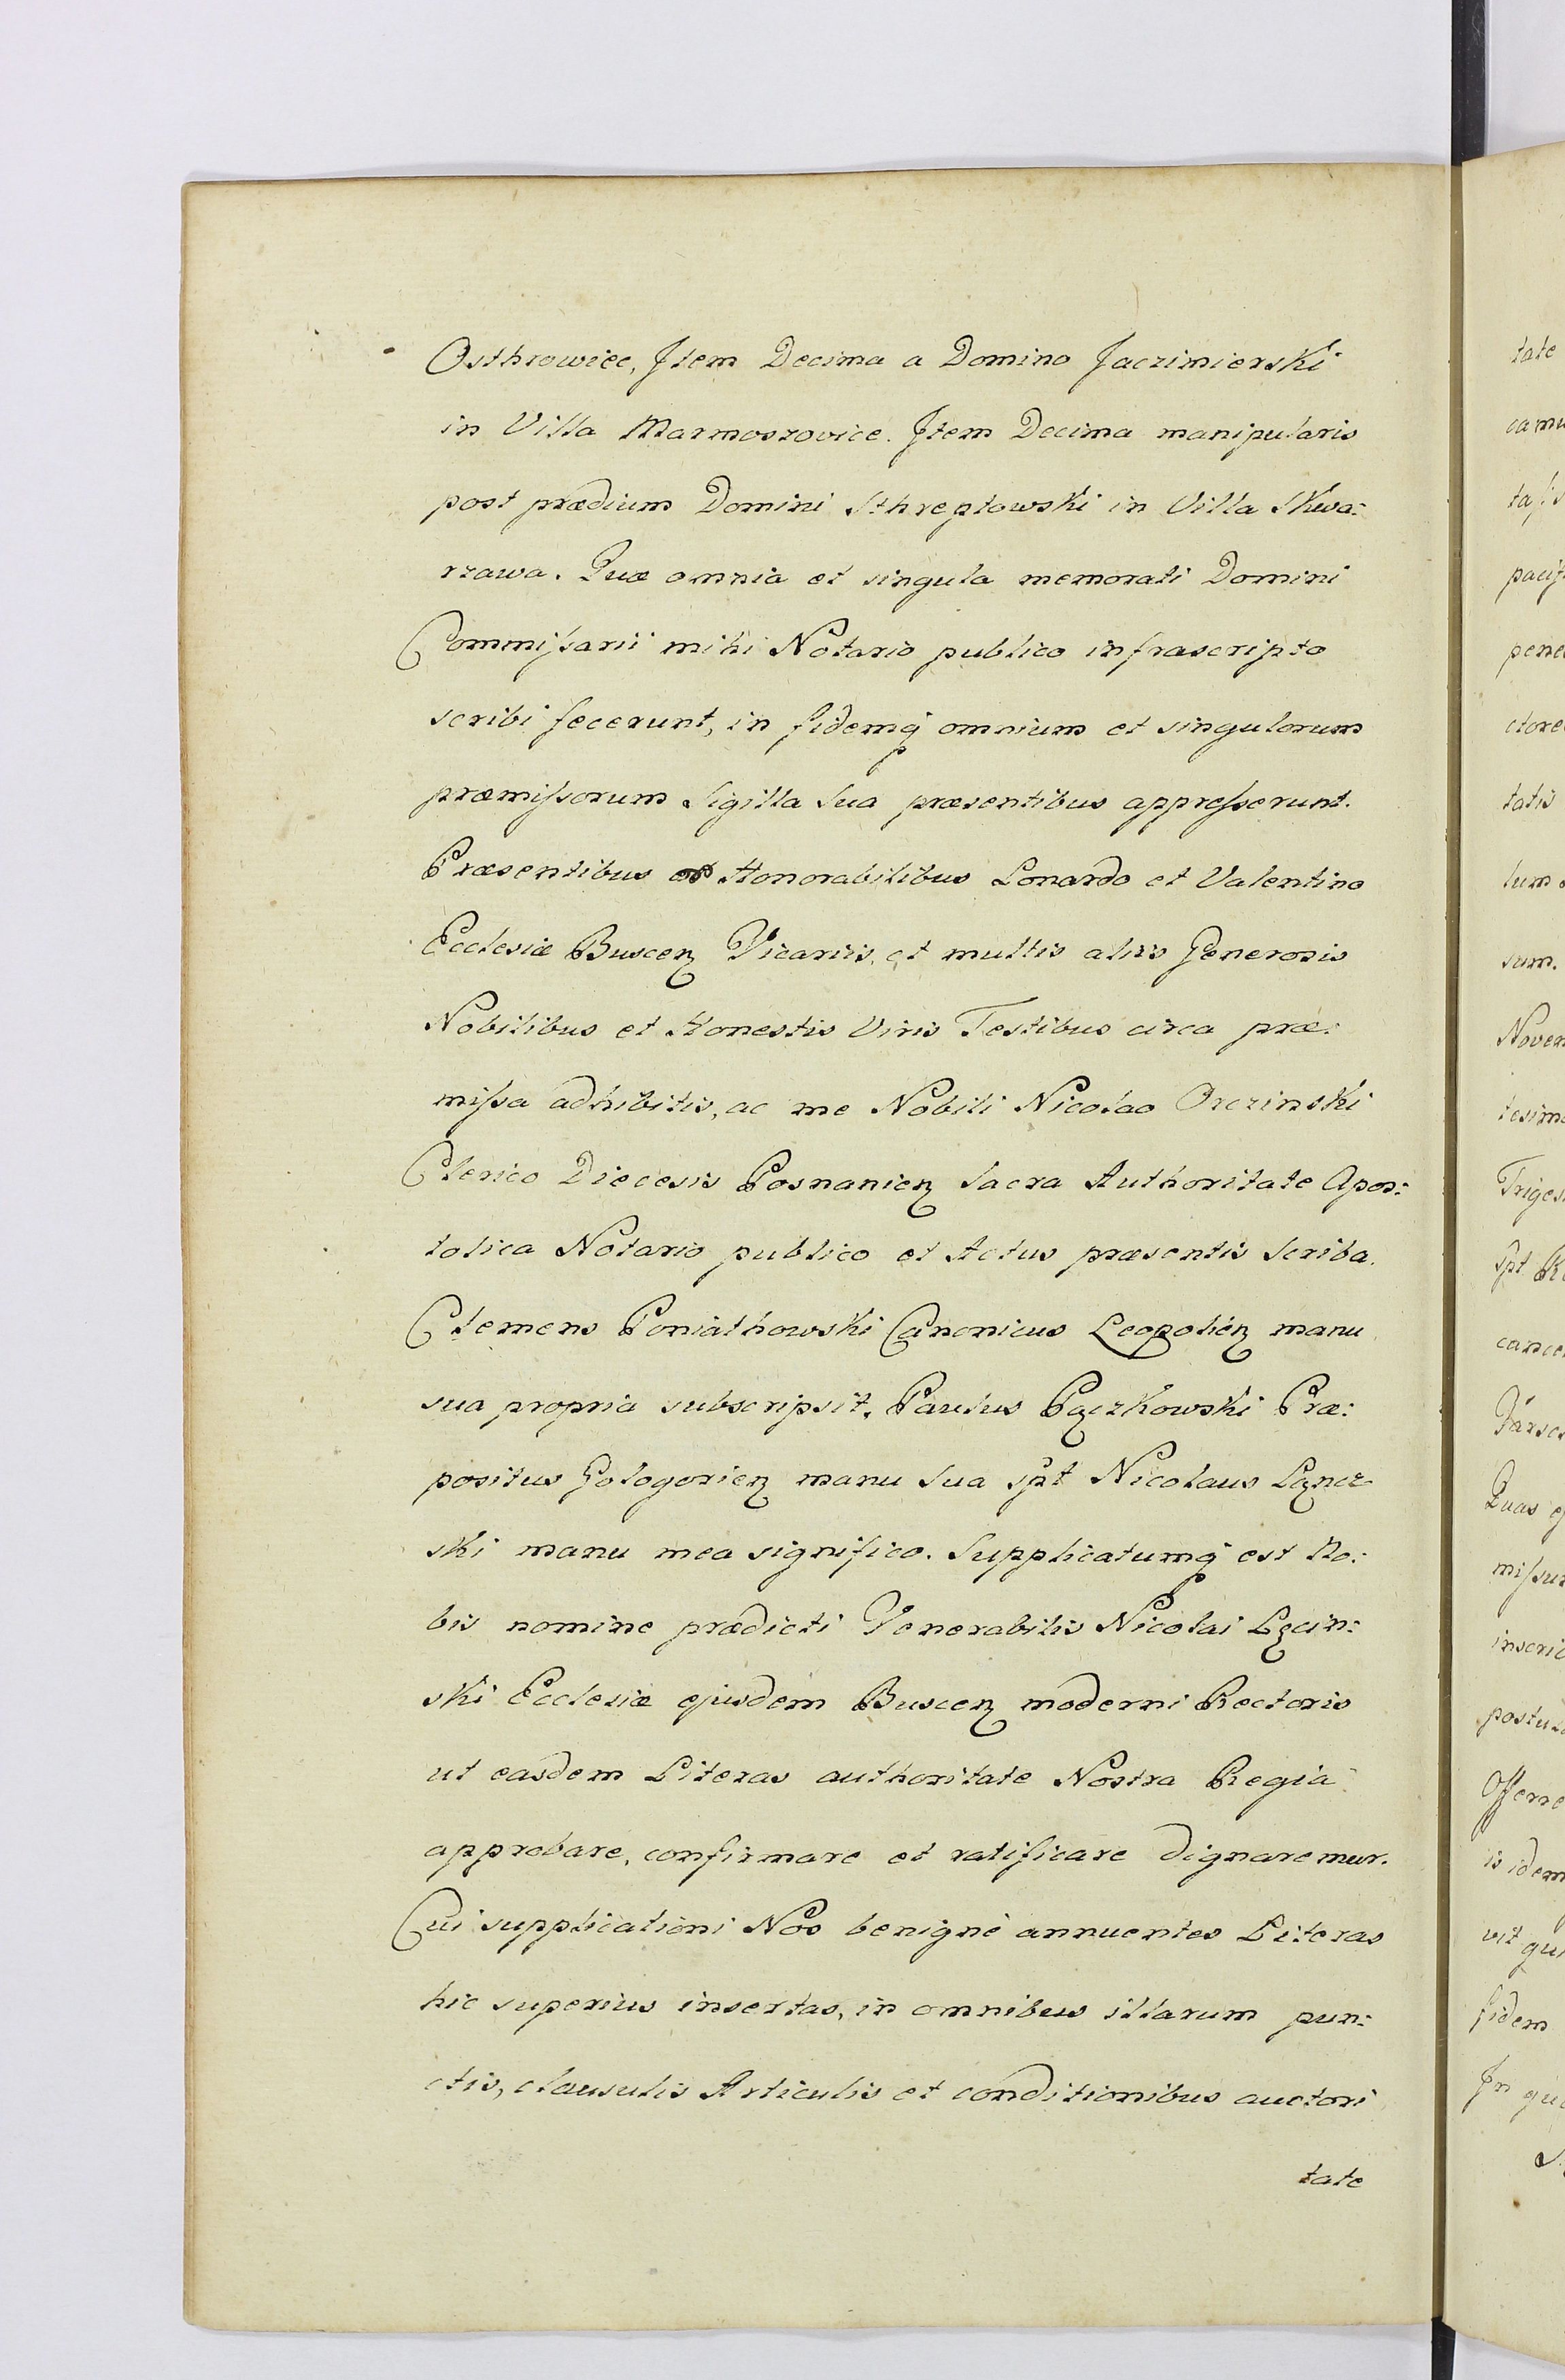 Osthrowiec, Item Decima a Domino Jaczimierski
in Villa Marmoszovice. Item Decima manipularis
post prædium Domini Sthreptowski in Villa Skwa:
rzawa. Quæ omnia et singula memorati Domini
Commiſsarii mihi Notario publico infrascripto
scribi fecerunt, in fidemq́ omnium et singulorum
præmiſsorum Sigilla Sua præsentibus appreſserunt.
Præsentibus Honorabilibus Lonardo et Valentino
Ecclesiæ Buscen̄ Vicariis, et multis aliis Generosis
Nobilibus et Honestis Viris Testibus circa præ:
miſsa adhibitis, ac me Nobili Nicolao Orczinski
Clerico Diecesis Posnanien̄ Sacra Authoritate Apos:
tolica Notario publico et Actus præsentis Scriba.
Clemens Poniathowski Canonicus Leopolien̄ manu
sua propria subscripsit. Paulus Pączkowski Præ:
positus Gologorien̄ manu Sua spt Nicolaus Lącz
ski manu mea significo. Supplicatumq́ est No:
bis nomine prædicti Venerabilis Nicolai Lęcin:
ski Ecclesiæ ejusdem Buscen̄ moderni Rectoris
ut easdem Literas authoritate Nostra Regia
approbare, confirmare et ratificare dignaremur.
Cui supplicationi Nos benignè annuentes Literas
hic superius insertas, in omnibus illarum pun:
ctis, clausulis Articulis et conditionibus auctori
tate
tate
camu
taſs
pacif
pene
ctore
tatis
lum
sum.
Novem
tesimo
Triges
Spt R
cance
Parsc
Quas
miſsu
inscri
postu
Offerre
is idem
vit qui
fidem
In qu